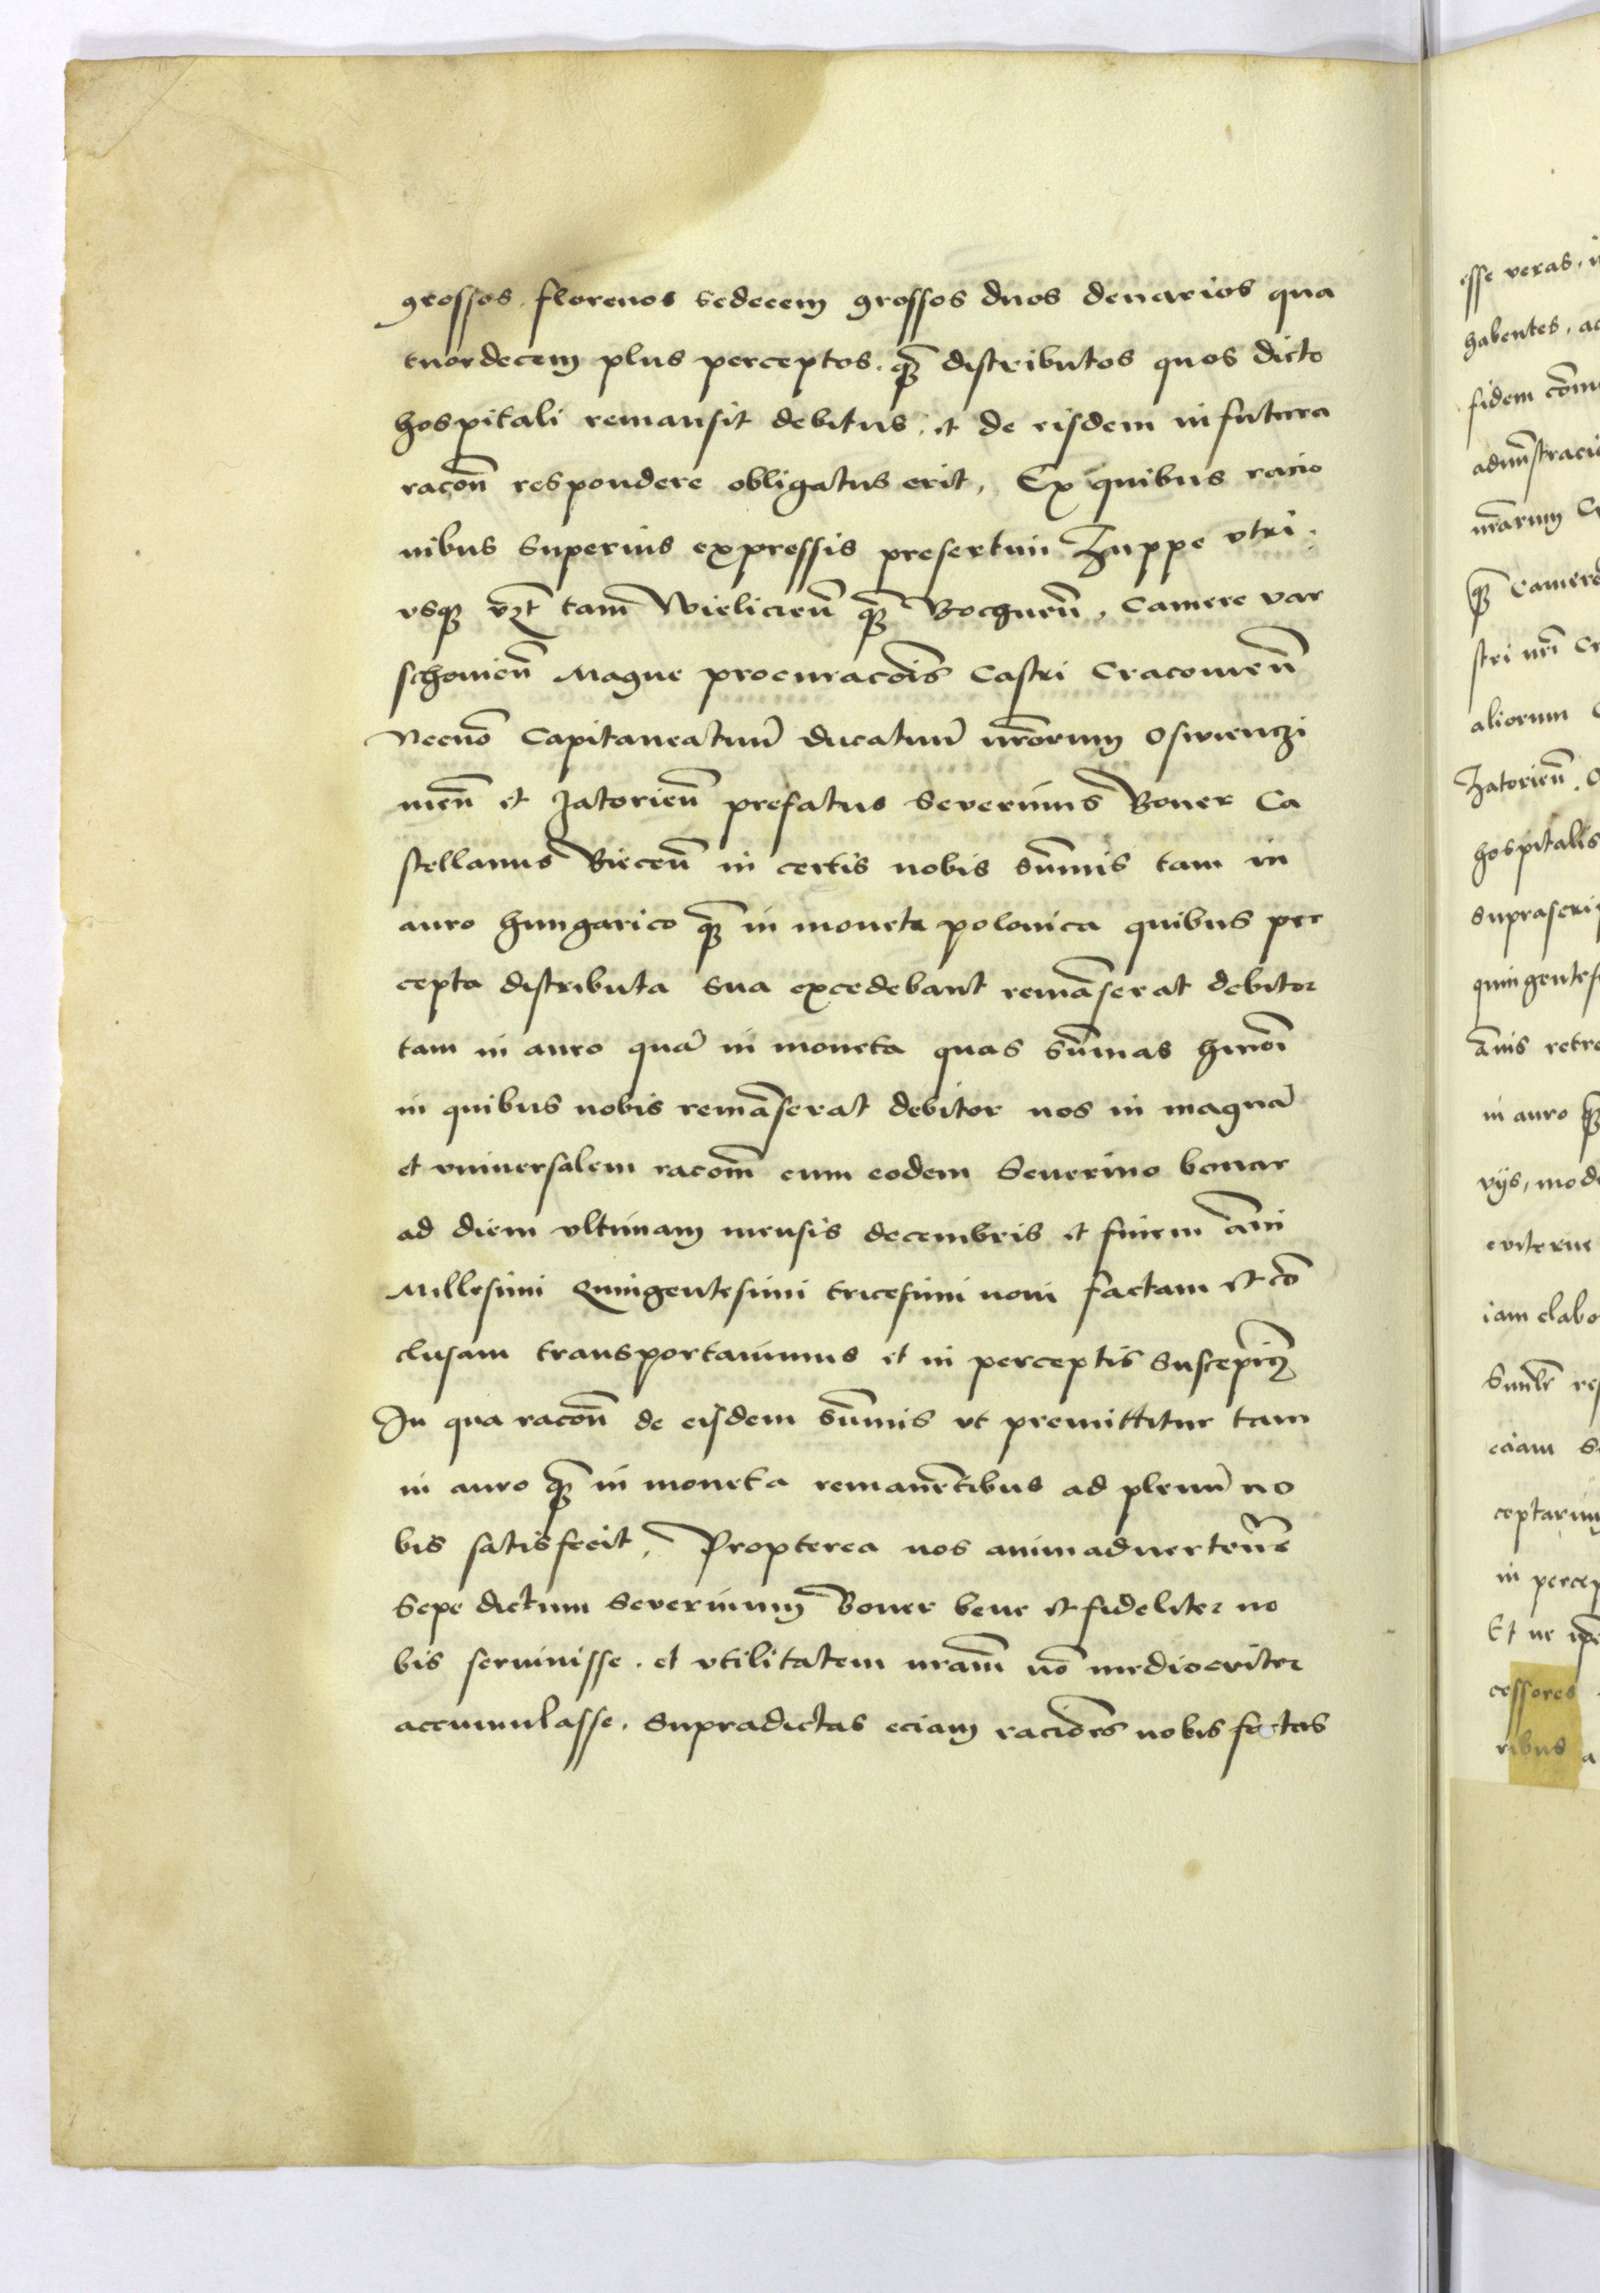 grossos florenos sedecem grossos duos denarios qua
tuordecem plus perceptos. qȝ̄ distributos quos dicto
hospitali remansit debitus. et de eisdem in futura
racōn̄ respondere obligatus erit, Ex quibus racio
nibus superius expressis presertim Zuppe vtri
vsqȝ vȝt̄ tam̄ Wielicien̄ qȝ̄ Bochnen̄, Camere var
schouien̄ Magne procuracōis Castri Cracouien̄
Necnō Capitaneatuū ducatuū nrōrum Oswienczi
men̄ et Zatorien̄ prefatus Seuerinus Boner Ca
stellanus Biecen̄ in certis nobis sūmis tam in
auro hungarico qȝ̄ in moneta polonica quibus per
cepta distributa sua excedebant remāserat debitor
tam in auro quā in moneta quas sūmas hmōi
in quibus nobis remāserat debitor nos in magnā
et vniuersalem racōm̄ cum eodem Seuerino bonar
ad diem vltimam mensis decembris et finem āni
Millesimi Quingentesimi tricesimi noni factam et cō
clusam transportauimus et in perceptis suscepimȝ
In qua racōn̄ de eisdem sūmis vt premittitur tam
in auro qȝ̄ in moneta remanētibus ad plenū no
bis satisfecit, Propterea nos animaduertentes
Sepe dictum Seuerinum Boner bene et fideliter no
bis seruiuisse. et vtilitatem nram̄ nō mediocriter
accumulasse. Supradictas eciam raciōes nobis factas
esse veras,
habentes, ac
fidem
nrārum
qȝ̄ Camere
stri nrī Cr
aliorum
Zatorien̄.
hospitalis
suprascrip
quingentes
ānis retro
in auro qȝ̄
vijs, mod
iam elabo
eciam
ceptarum
in percep
Et ne
cessores
ribus a